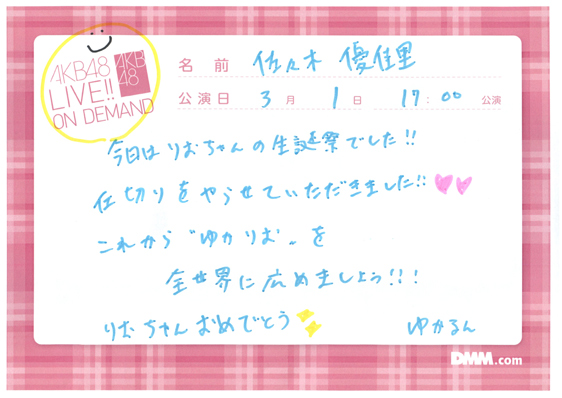 AKB48
LIVE!!
ON DEMAND
AKB
48
名前 佐々木 優佳里
公演日 3月 1日 17:00 公演
今日はりおちゃんの生誕祭でした!!
仕切りをやらせていただきました!!
これから〝ゆかりお〟を
全世界に広めましょう!!!
りおちゃんおめでとう
ゆかるん
DMM.com